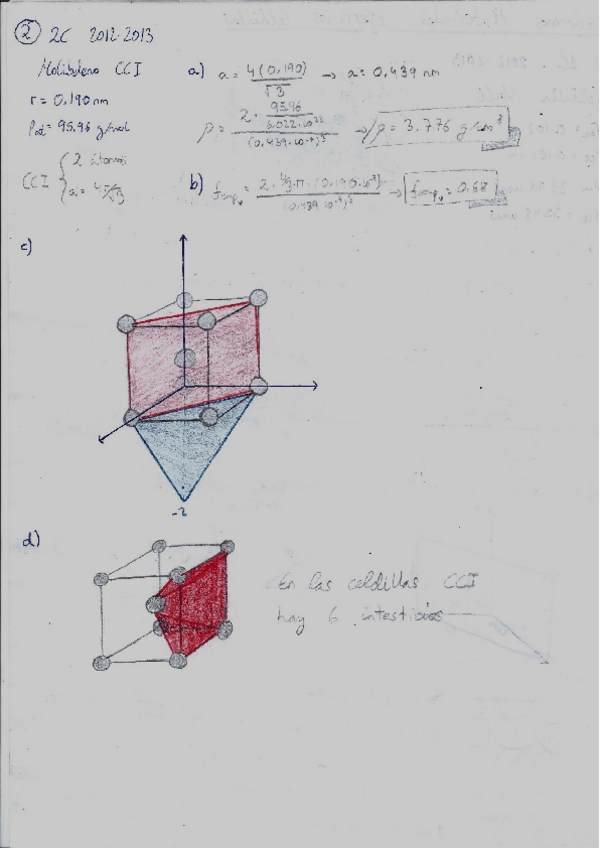 ② 2C 2012-2013
Molibdeno CCI
r = 0.190 nm
Pat = 95.96 g/mol
CCI { 2 átomos
a = 4r/√3
a) a = 4(0.190)/√3 → a = 0.439 nm
ρ = 2 · (95.96/6.022·10²³)/(0.439·10⁻⁷)³ → ρ = 3.776 g/cm³
b) f empv = 2·4/3·π·(0.190·10⁻⁷)³/(0.439·10⁻⁷)³ → f empv = 0.68
c)
-2
d)
En las celdillas CCI
hay 6 intesticios